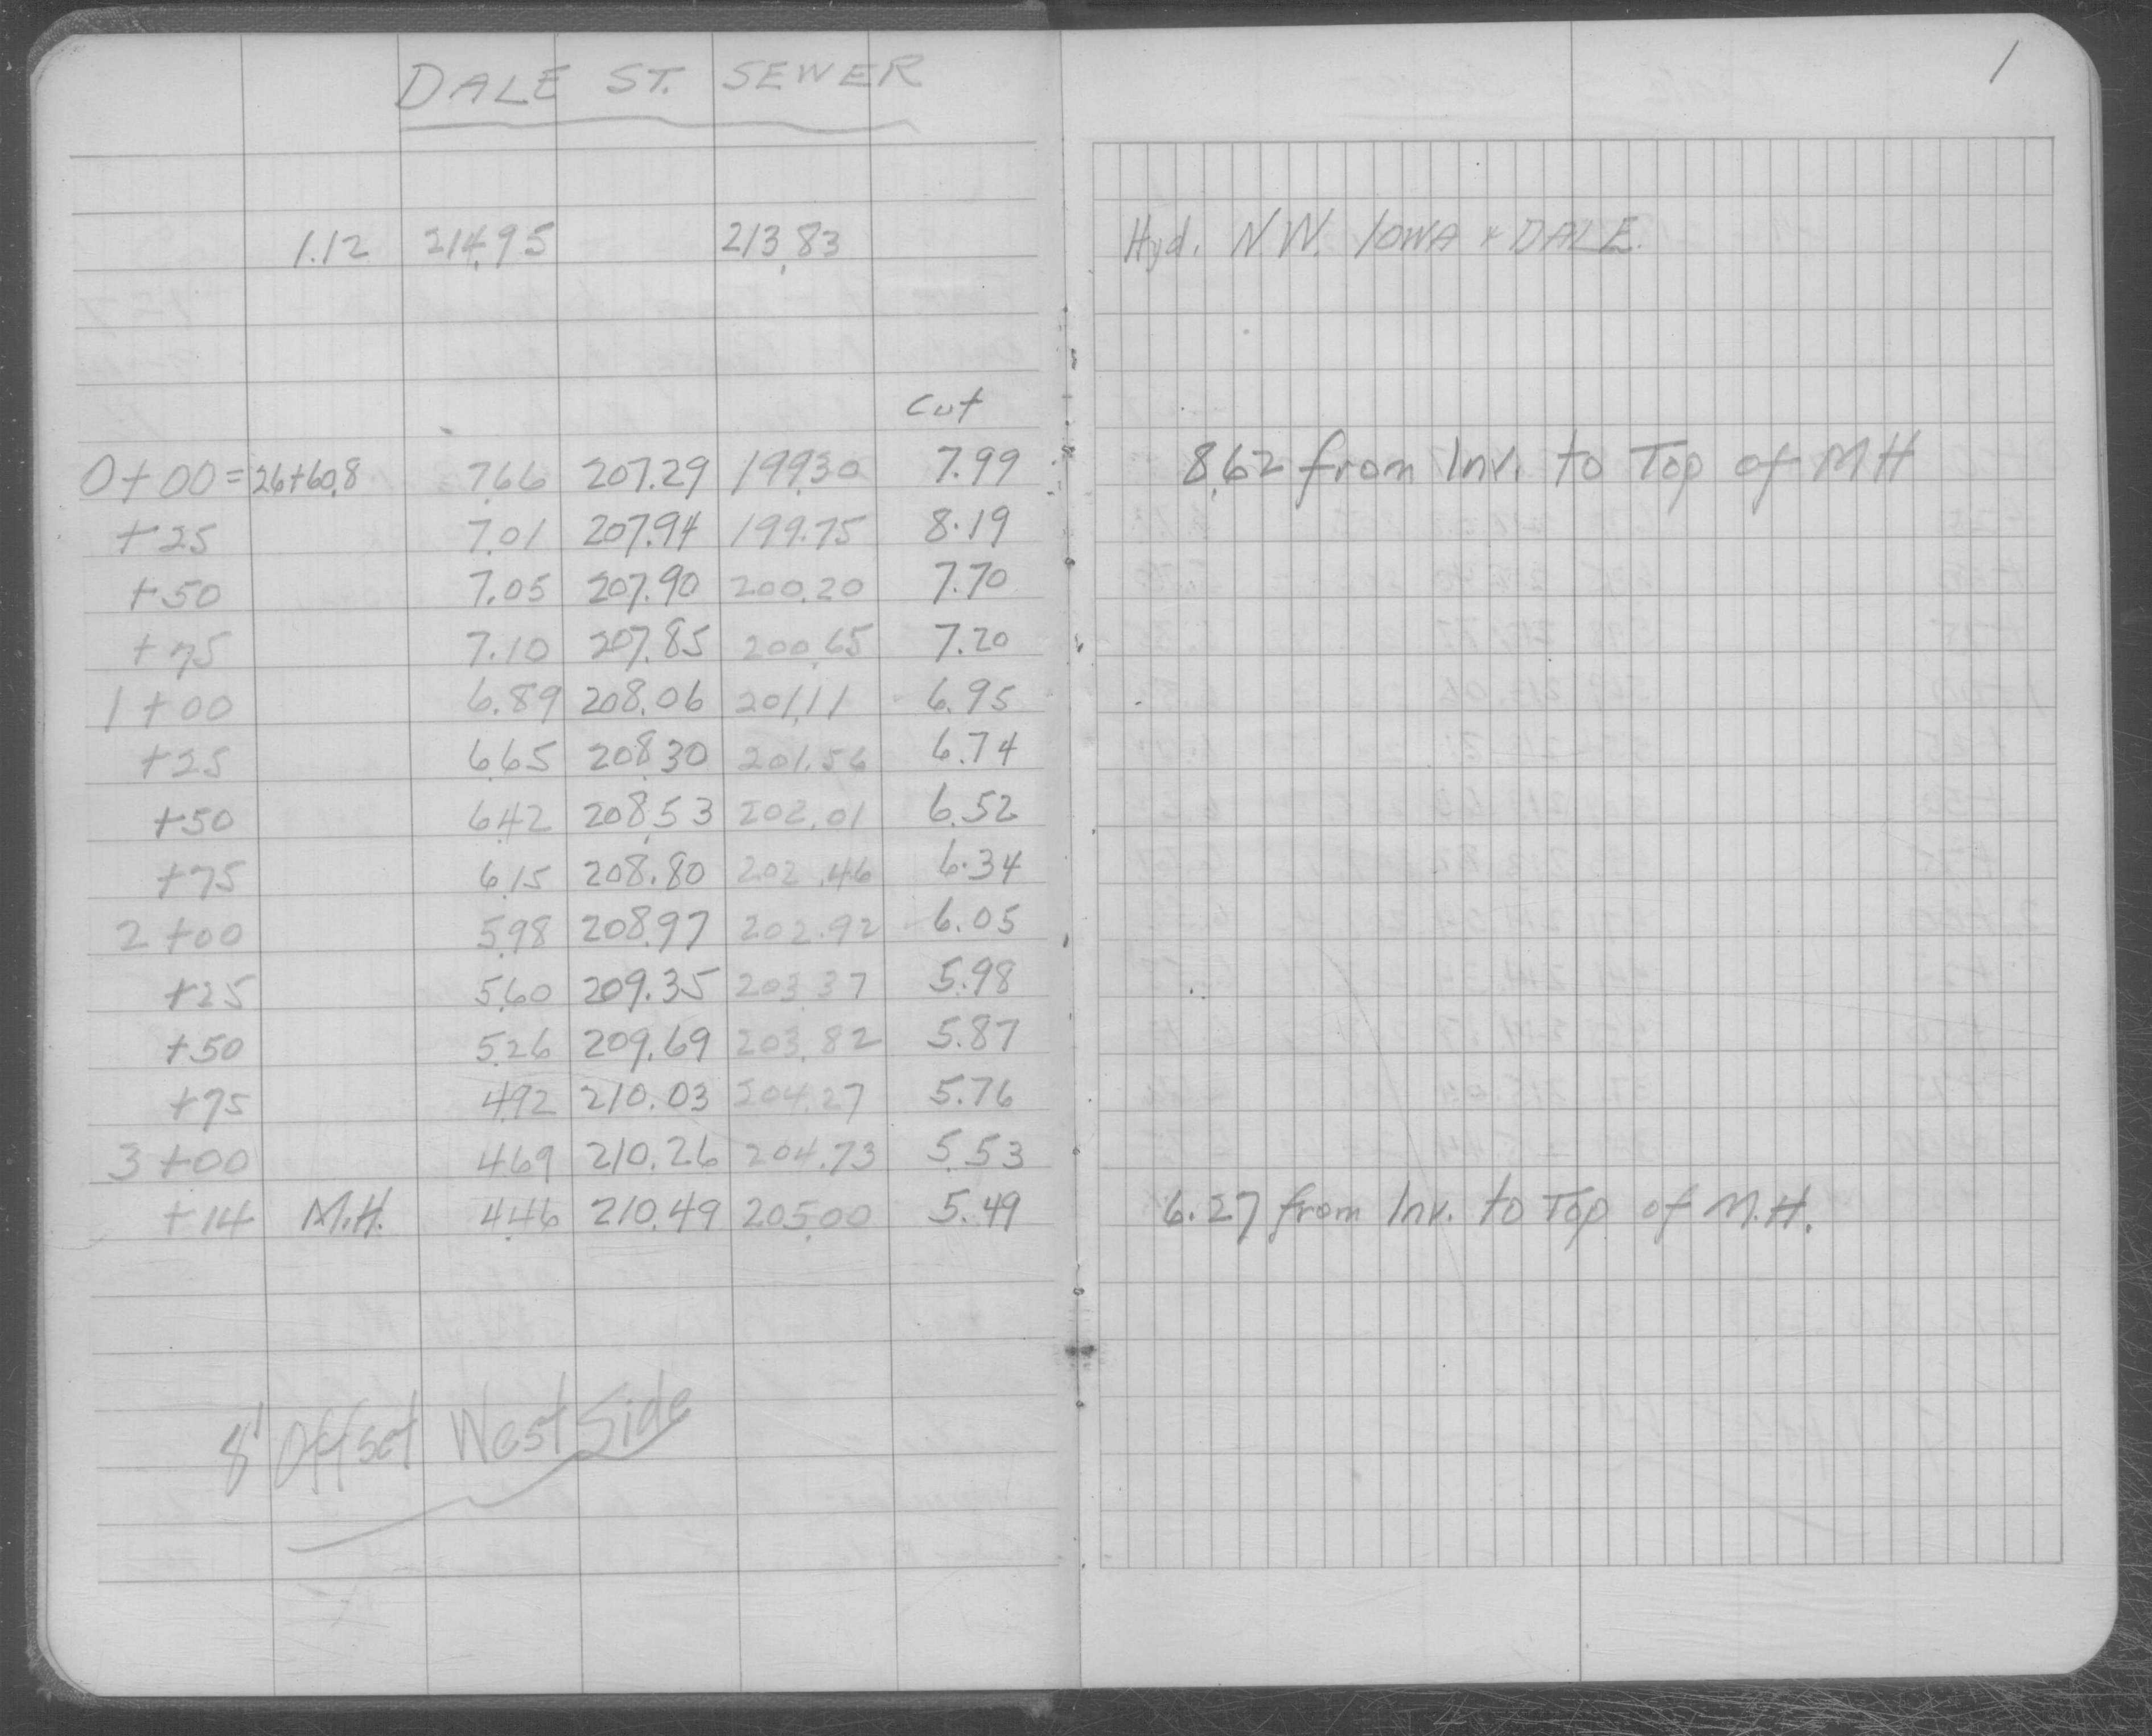 DALE ST. SEWER
1
1.12 214.95 213.83 Hyd. N.W. IOWA & DALE.
Cut
0+00=26+60.8 7.66 207.29 199.30 7.99 8.62 from Inv. to Top of MH
+25 7.01 207.94 199.75 8.19
+50 7.05 207.90 200.20 7.70
+75 7.10 207.85 200.65 7.20
1+00 6.89 208.06 201.11 6.95
+25 6.65 208.30 201.56 6.74
+50 6.42 208.53 202.01 6.52
+75 6.15 208.80 202.46 6.34
2+00 5.98 208.97 202.92 6.05
+25 5.60 209.35 203.37 5.98
+50 5.26 209.69 203.82 5.87
+75 4.92 210.03 204.27 5.76
3+00 4.69 210.26 204.73 5.53
+14 M.H. 4.46 210.49 205.00 5.49 6.27 from Inv. to Top of M.H.
8' Offset West Side